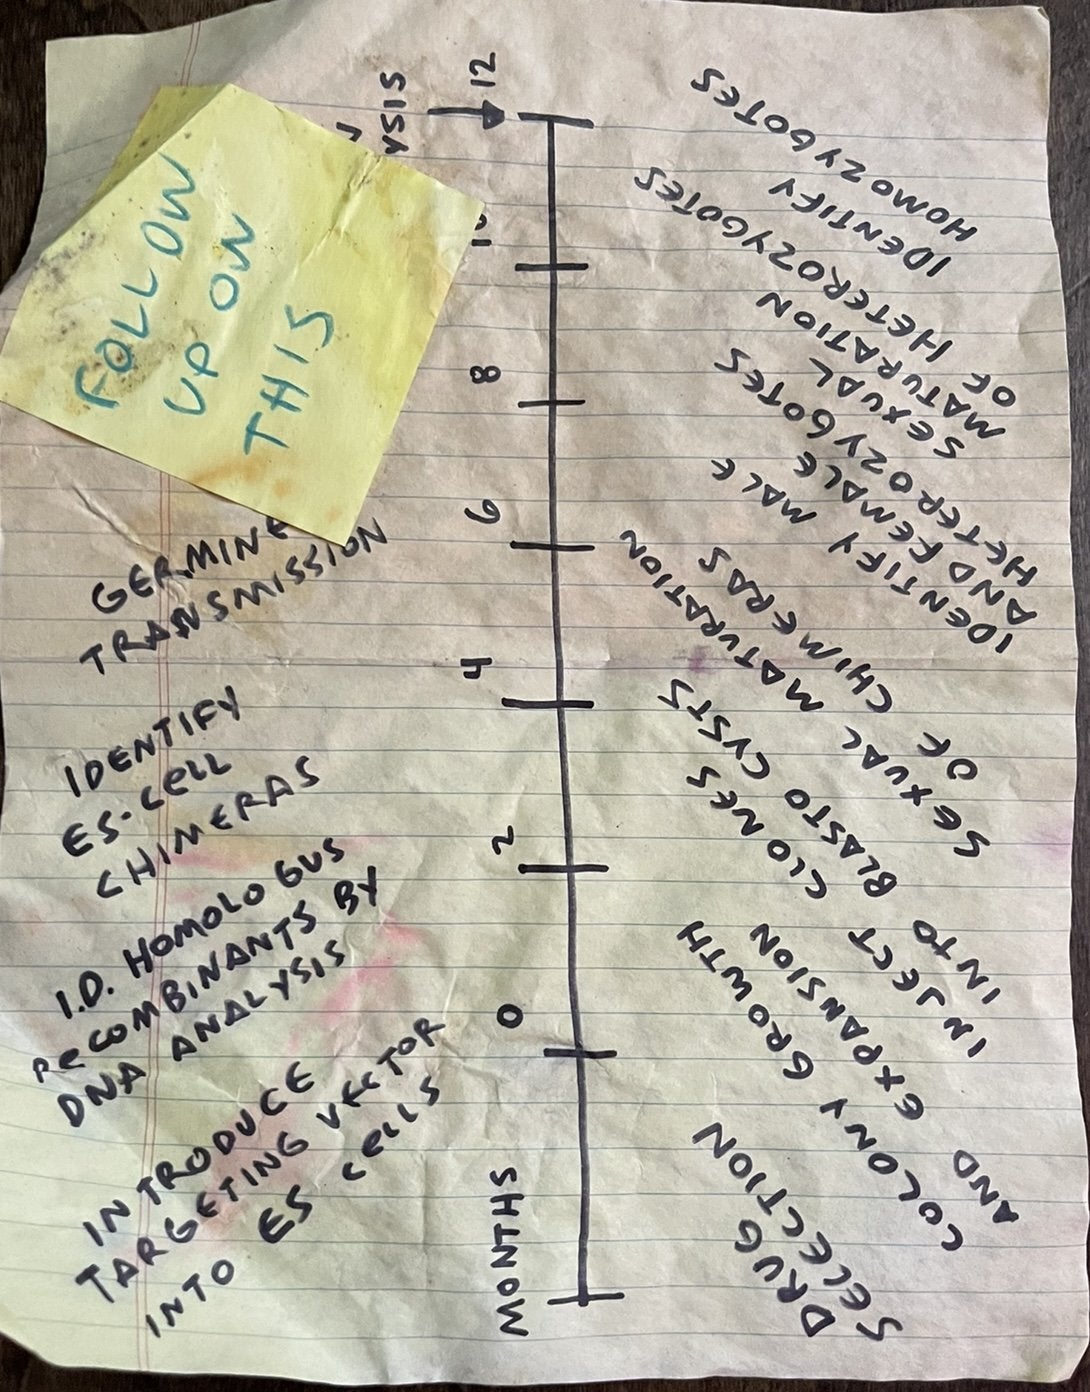 INTRODUCE
TARGETING VECTOR
INTO ES CELLS
I.D. HOMOLOGUS
RECOMBINANTS BY
DNA ANALYSIS
IDENTIFY
ES-CELL
CHIMERAS
GERMINE
TRANSMISSION
FOLLOW
UP ON
THIS
YSIS
MONTHS 0 2 4 6 8 10 12
DRUG
SELECTION
COLONY GROWTH
AND EXPANSION
INJECT CLONES
INTO BLASTO CYSTS
SEXUAL MATURATION
OF CHIMERAS
IDENTIFY MALE
AND FEMALE
HETEROZYGOTES
SEXUAL
MATURATION
OF HETEROZYGOTES
IDENTIFY
HOMOZYGOTES